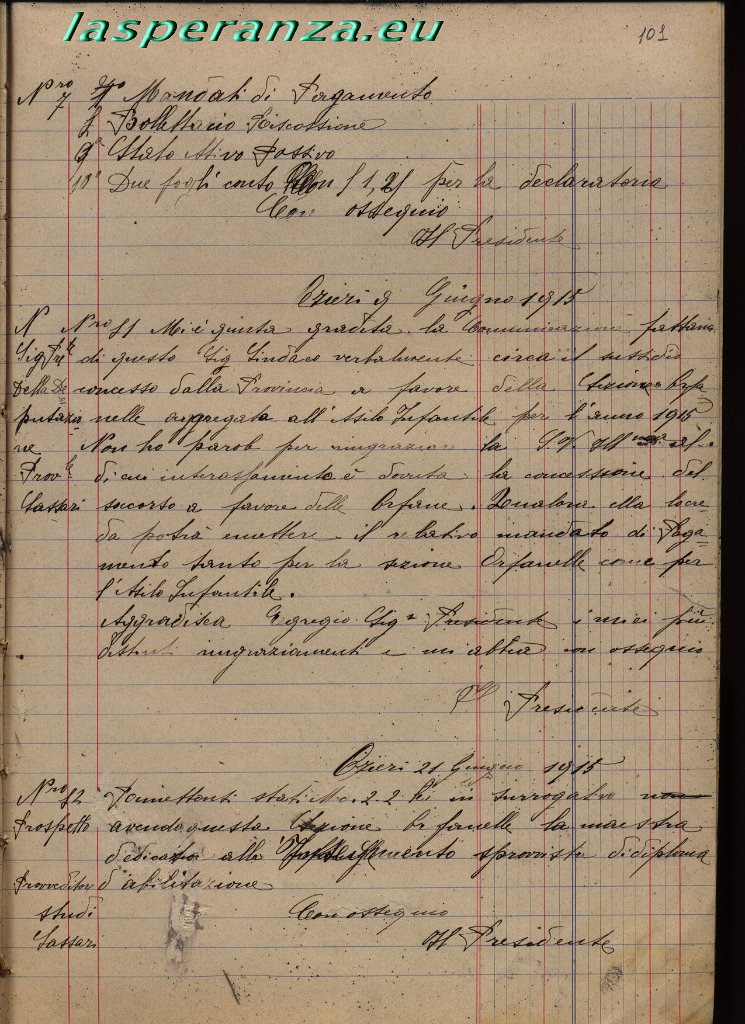 lasperanza.eu
101
Nro 7 Mandati di Pagamento
Bollettario Riscossione
9° Stato Attivo Passivo
10° Due fogli conto per la declaratoria
Con ossequio
Il Presidente
Ozieri 9 Giugno 1915
N Nro 51 Mi è giunta gradita la Comunicazione fattami
Sig Pre di questo Sig Sindaco verbalmente circa il sussidio
Della De concesso dalla Provincia a favore della Sezione Orfa
putazio nelle aggregata all'Asilo Infantile per l'anno 1915
ne Non ho parole per ringraziare la S.V. Ill al
Prov di cui interessamento è dovuta la concessione del
Sassari soccorso a favore delle Orfane. Qualora ella lo cre-
da potrà emettere il relativo mandato di Paga-
mento tanto per la sezione Orfanelle come per
l'Asilo Infantile.
Aggradisca Egregio Sig Presidente i miei più
distinti ringraziamenti e mi abbia con ossequio
Il Presidente
Ozieri 21 Giugno 1915
Nro 52 stati 22 in surrogativo
Prospetto avendo questa Sezione Orfanelle la maestra
dedicata alla sprovvista di diploma
Provveditore d'abilitazione
studi Con ossequio
Sassari Il Presidente